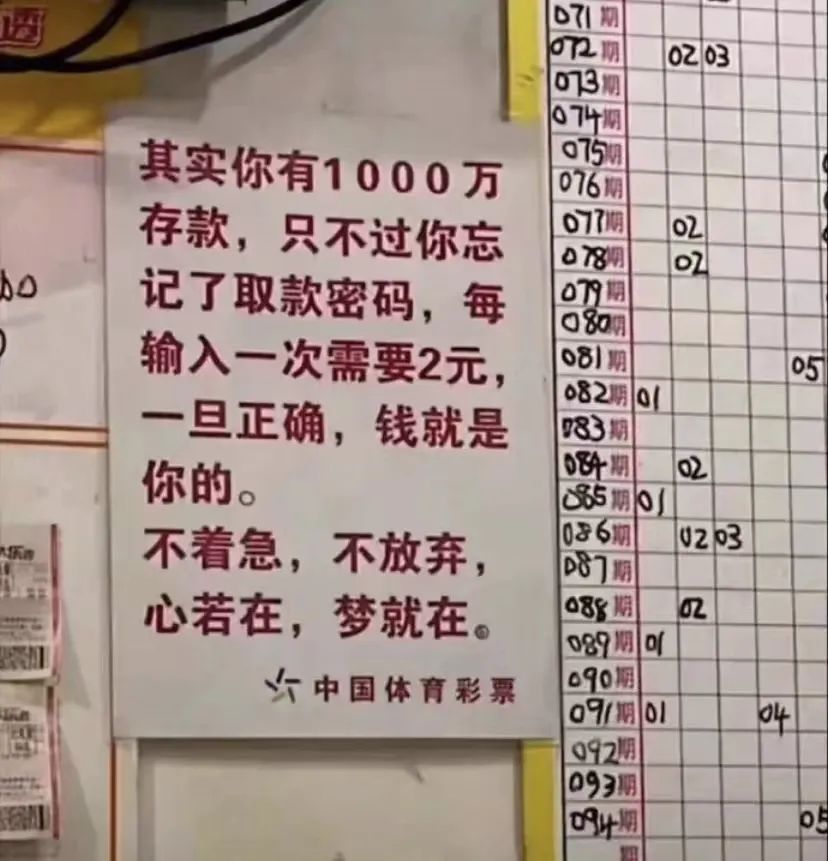 透
其实你有1000万
存款，只不过你忘
记了取款密码，每
输入一次需要2元，
一旦正确，钱就是
你的。
不着急，不放弃，
心若在，梦就在。
中国体育彩票
071期
072期 02 03
073期
074期
075期
076期
077期 02
078期 02
079期
080期
081期 05
082期 01
083期
084期 02
085期 01
086期 02 03
087期
088期 02
089期 01
090期
091期 01 04
092期
093期
094期 05
期